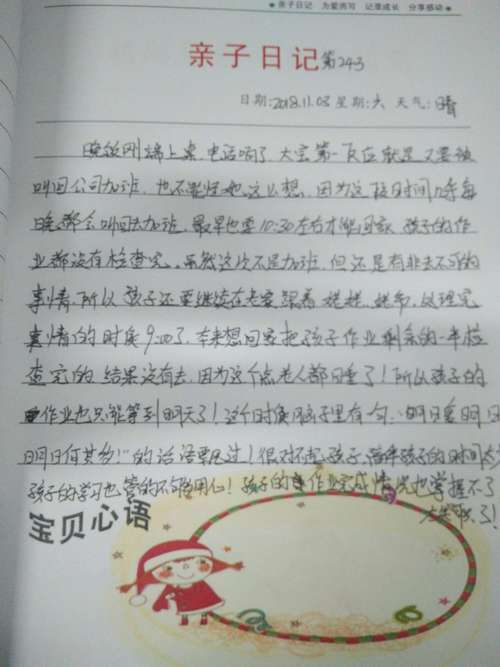 亲子日记 为爱而写 记录成长 分享感动
亲子日记第243
日期:2018.11.03 星期:六 天气:晴
晚饭刚端上桌,电话响了,大宝第一反应就是又要被
叫回公司加班,也不能怪她这么想,因为这段时间每
晚都会叫回去加班,最早也要10:30左右才能回家 孩子的作
业都没有检查完。虽然这次不是加班,但还是有非去不可的
事情,所以孩子还要继续在老家跟着姥姥、姥爷,处理完
事情的时候9:00了,本来想回家把孩子作业剩余的一半检
查完的 结果没有去,因为这个点老人都闪睡了!所以孩子的
作业也只能等到明天了!这个时候脑子里有句:“明日复明日
明日何其多!”的话语飘过!很对不起孩子,陪伴孩子的时间太少
孩子的学习也管的不够用心!孩子的作业完成情况也掌握不了
太失败了!
宝贝心语